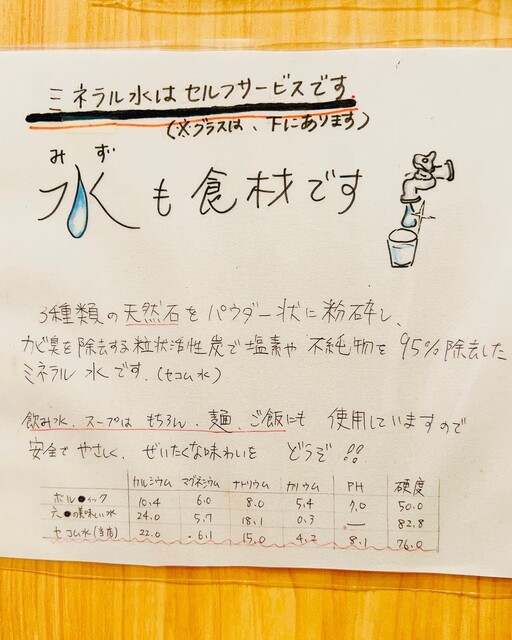 ミネラル水はセルフサービスです
(※グラスは、下にあります)
みず
水も食材です
3種類の天然石をパウダー状に粉砕し、
カビ臭を除去する粒状活性炭で塩素や不純物を95%除去した
ミネラル水です。(セコム水)
飲み水、スープはもちろん、麺、ご飯にも使用していますので
安全でやさしく、ぜいたくな味わいをどうぞ!!
カルシウム マグネシウム ナトリウム カリウム PH 硬度
ボル●ィック 10.4 6.0 8.0 5.4 7.0 50.0
六●の美味しい水 24.0 5.7 18.1 0.3 — 82.8
セコム水(当店) 22.0 6.1 15.0 4.2 8.1 76.0